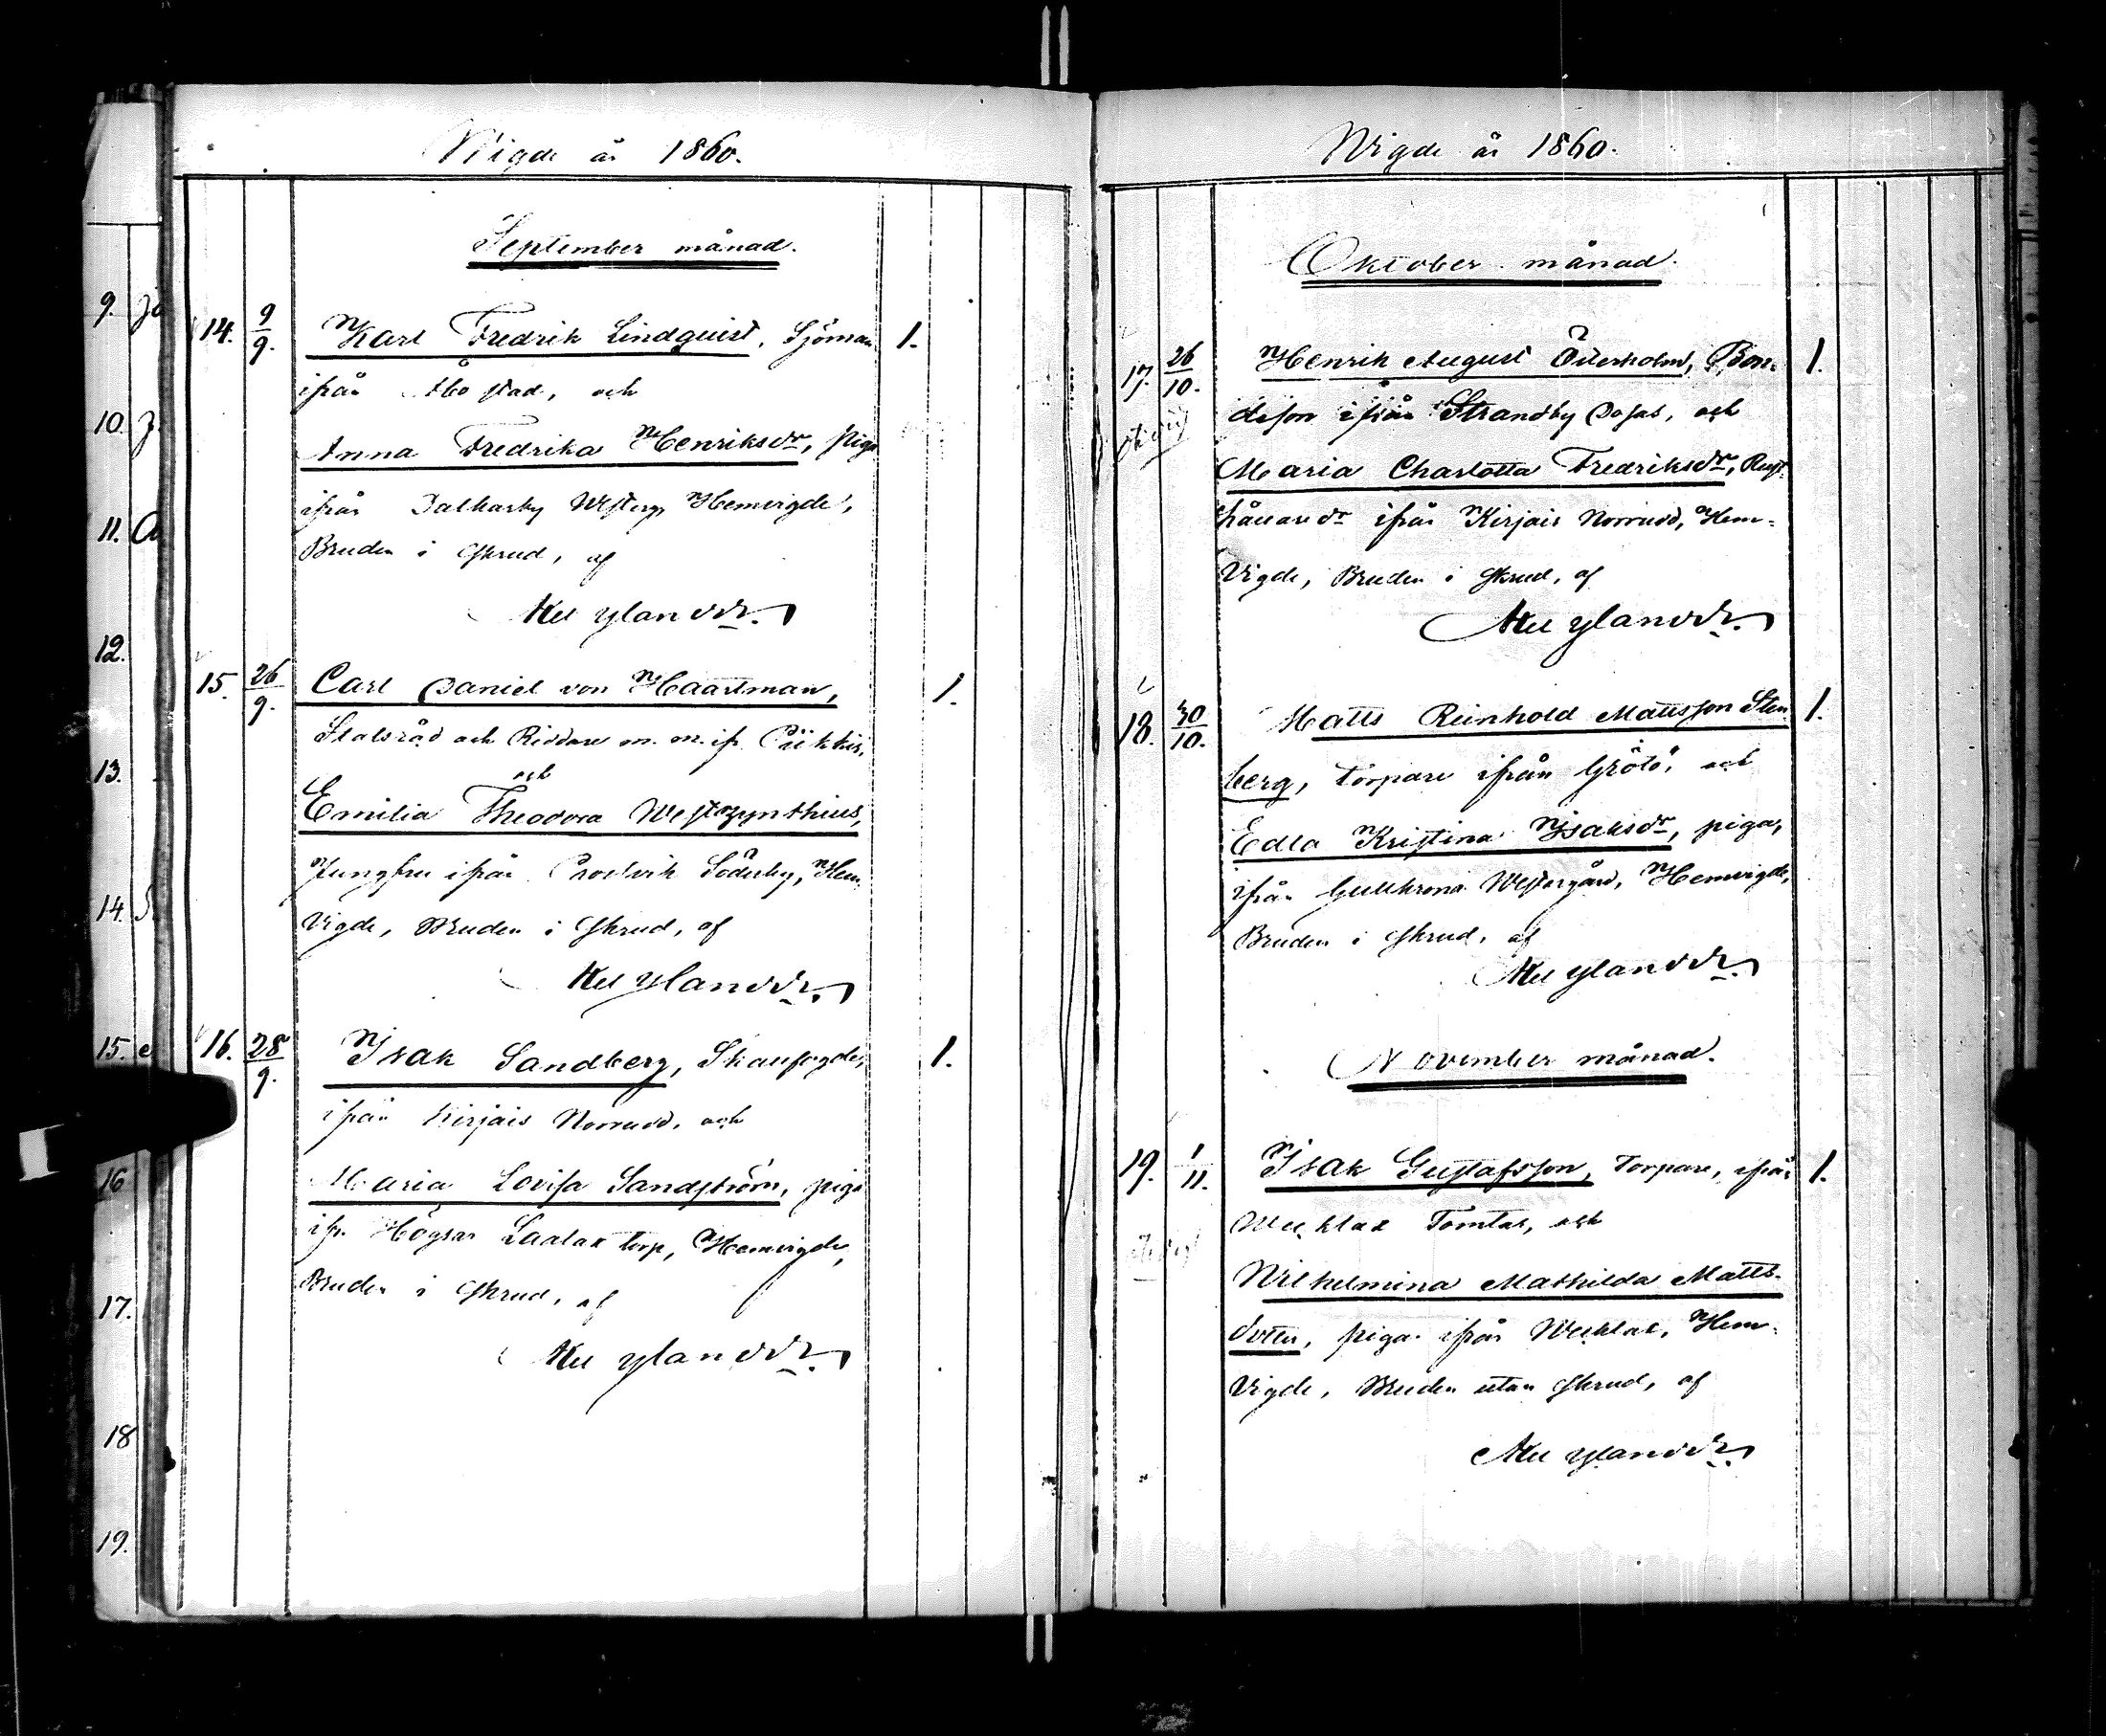 Wigde år 1860.
September månad.
14. 9/9. Karl Fredrik Lindquist, Sjöman 1.
ifrån Åbo stad, och
Anna Fredrika Henriksdr, piga
ifrån Dalkarby Westerg. Hemvigde,
Bruden i skrud, af
Nylander.
15. 26/9. Carl Daniel von Haartman, 1.
Statsråd och Riddare m. m. ifr. Piikkis,
och
Emilia Theodora Westzynthius,
Jungfru ifrån Prostvik Söderby, Hem-
vigde, Bruden i skrud, af
Nylander.
16. 28/9. Isak Sandberg, 1.
ifrån Kirjais Norrudd, och
Maria Lovisa Sandström, piga
ifr. Högsar Ladlax torp, Hemvigde,
Bruden i skrud, af
Nylander.
9.
10.
11.
12.
13.
14.
15.
16
17.
18
19.
Wigde år 1860.
Oktober månad.
17. 26/10. Henrik August Österholm, Bon- 1.
deson ifrån Strandby Dahls, och
Maria Charlotta Fredriksdr, Rust-
hållaredr ifrån Kirjais Norrudd, Hem-
vigde, Bruden i skrud, af
Nylander.
18. 30/10. Matts Reinhold Mattsson Sten- 1.
berg, torpare ifrån Grötö, och
Edla Kristina Isaksdr, piga,
ifrån Gullkrona Westergård, Hemvigde,
Bruden i skrud, af
Nylander.
November månad.
19. 1/11. Isak Gustafsson, Torpare, ifrån 1.
Tomtas, och
Wilhelmina Mathilda Matts-
dotter, piga ifrån Hem-
vigde, Bruden utan skrud, af
Nylander.